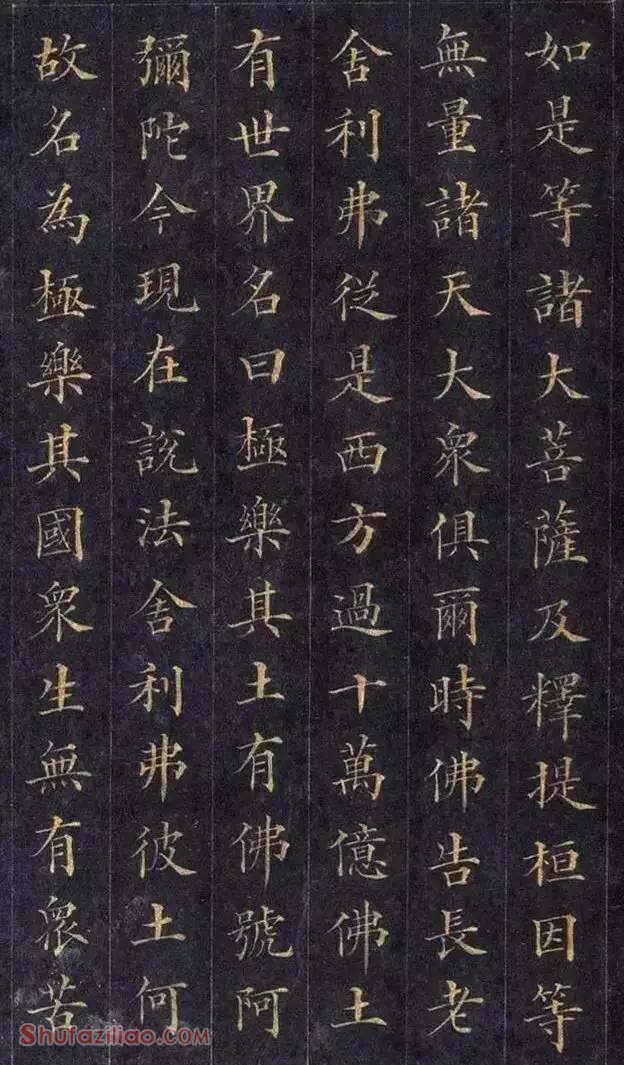 如是等諸大菩薩及釋提桓因等
無量諸天大衆俱爾時佛告長老
舍利弗從是西方過十萬億佛土
有世界名曰極樂其土有佛號阿
彌陀今現在說法舍利弗彼土何
故名為極樂其國衆生無有衆苦
Shufaziliao.com